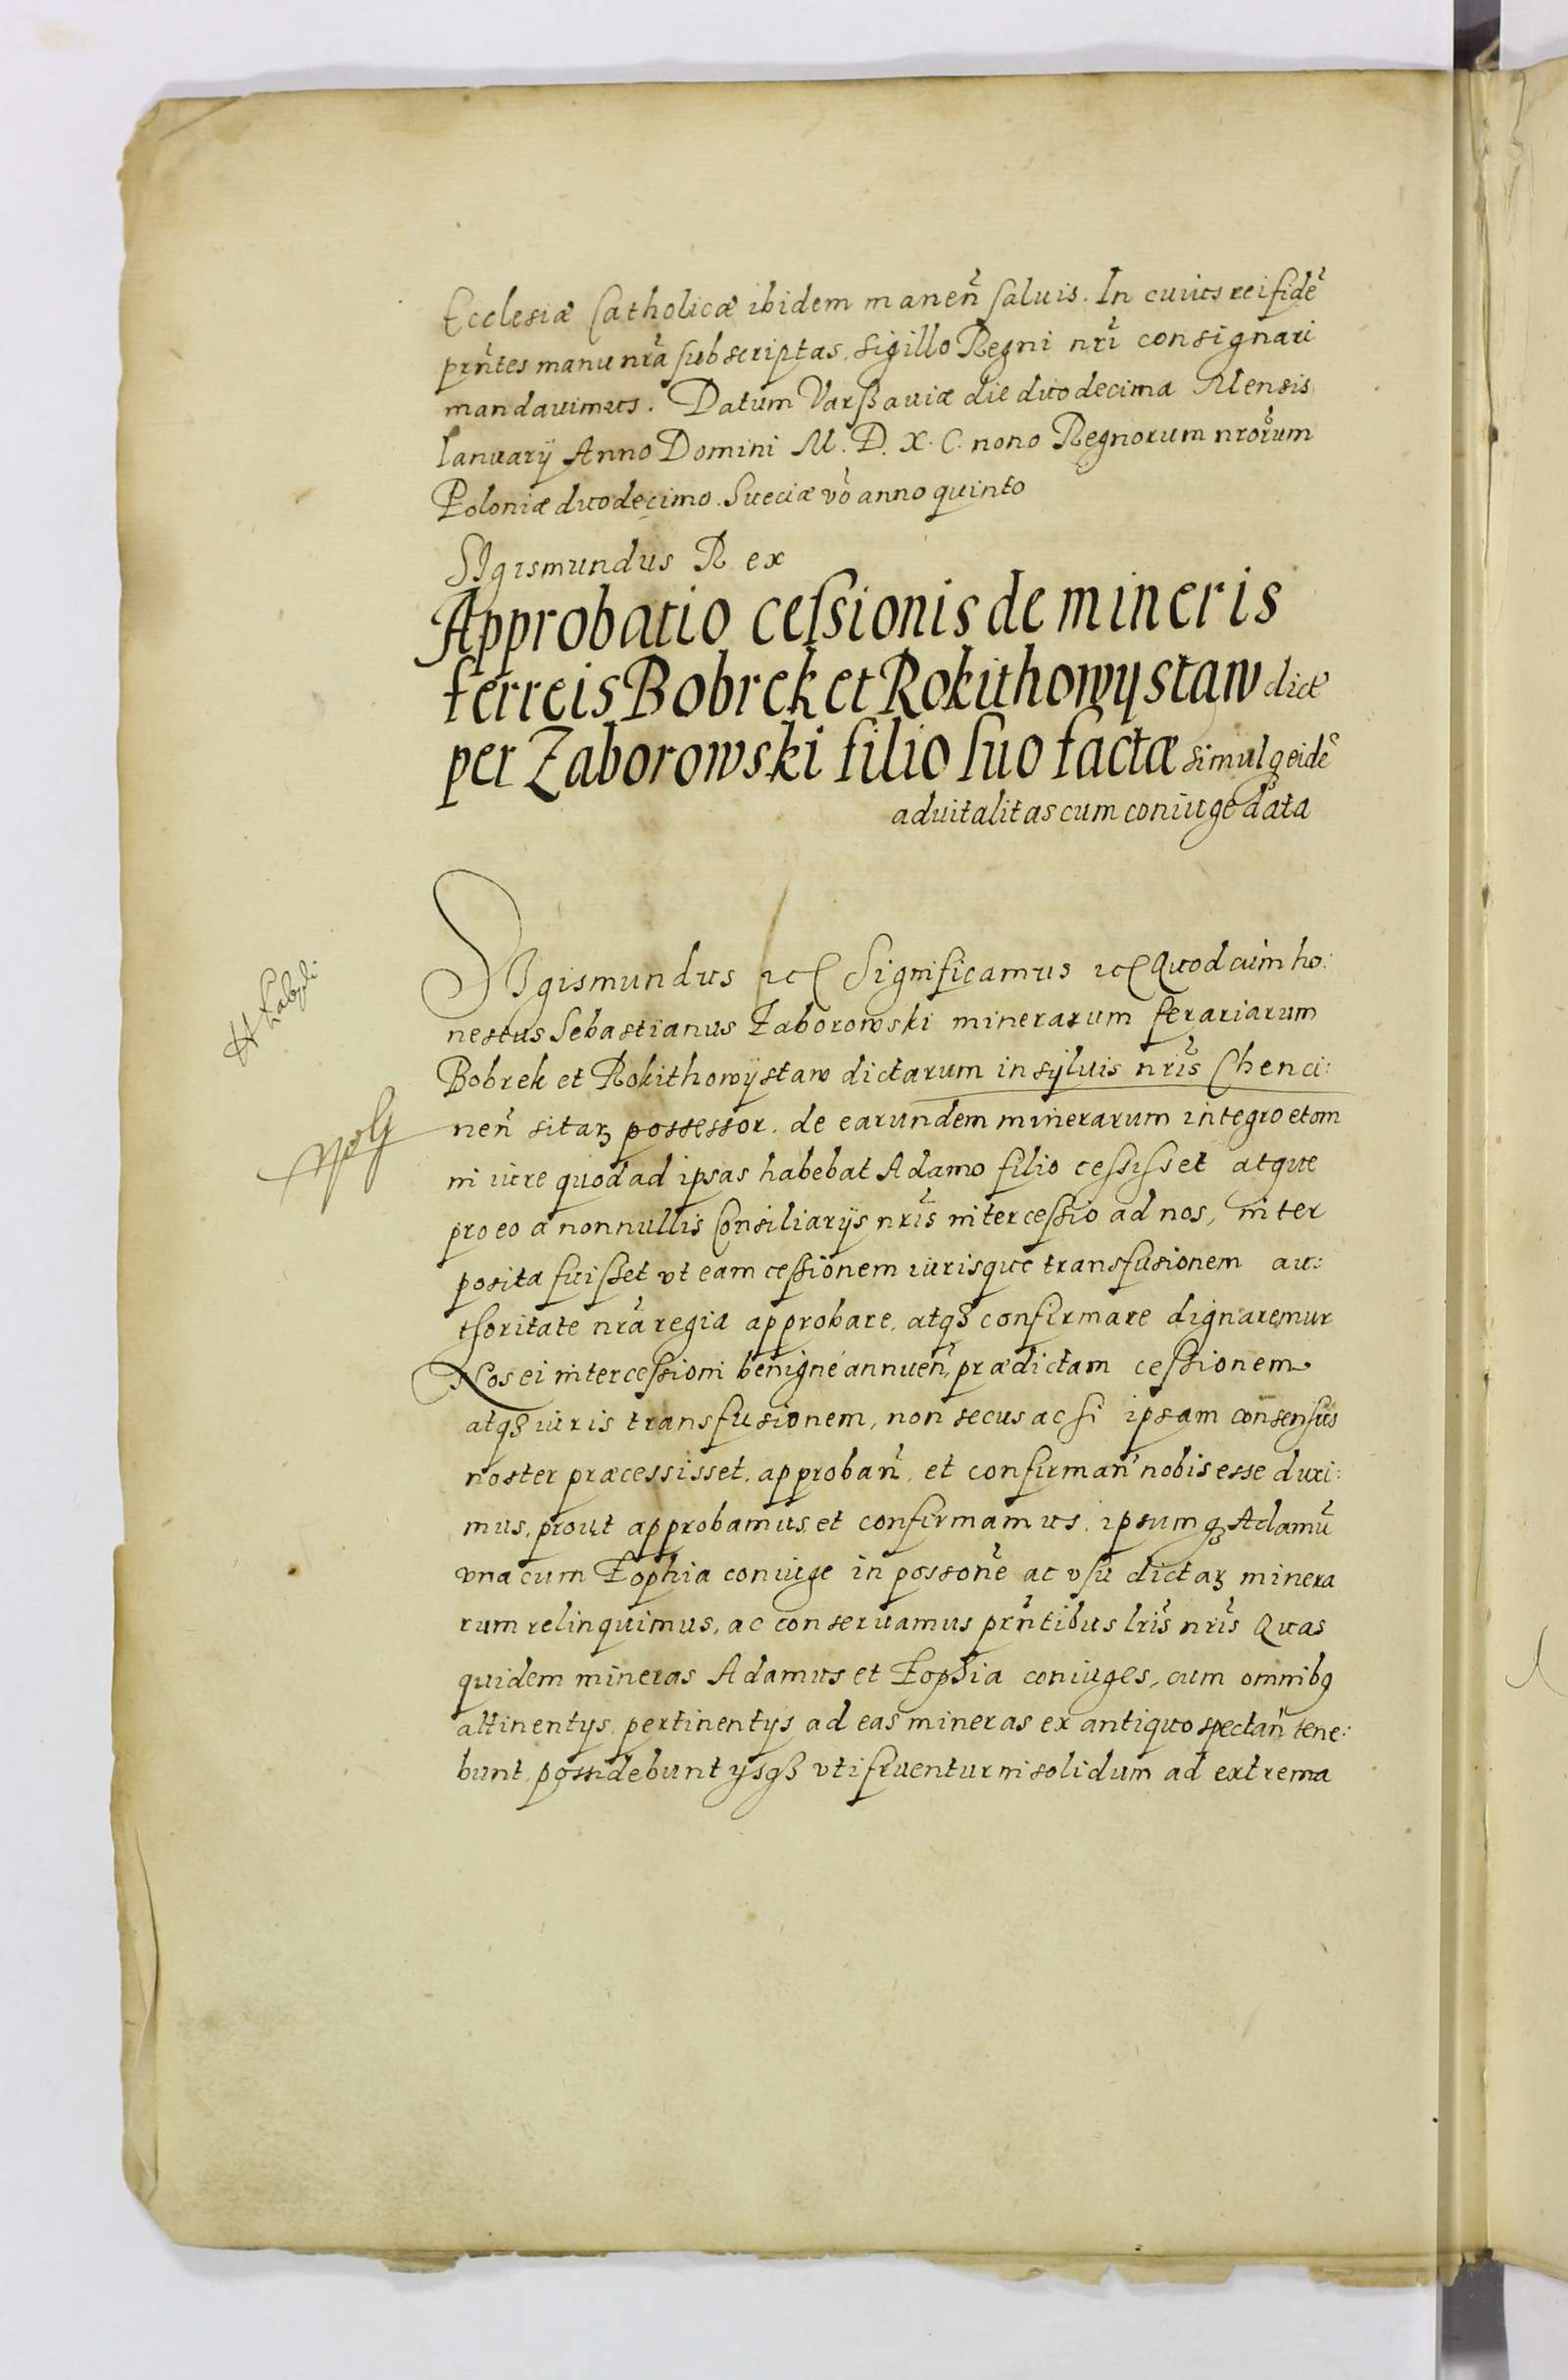 Ecclesiæ Catholicæ ibidem manen̄ saluis. In cuius rei fidē
prn̄tes manu nrā subscriptas, sigillo Regni nrī consignari
mandauimus. Datum Varssauiæ die duodecima Mensis
Ianuarij Anno Domini M. D. X. C. nono Regnorum nrōrum
Poloniæ duodecimo. Sueciæ vō anno quinto
SIgismundus Rex
Approbatio cessionis de mineris
ferreis Bobrek et Rokithowÿ staw dict̄
per Zaborowski filio suo factæ simulq eidē
aduitalitas cum coniuge data
SIgismundus etc Significamus etc Quod cum ho:
nestus Sebastianus Zaborowski minerarum ferariarum
Bobrek et Rokithowÿ staw dictarum in syluis nrīs Chenci:
nen̄ sitaꝝ possessor. de earundem minerarum integro et om
ni iure quod ad ipsas habebat Adamo filio cessisset atque
pro eo a nonnullis Consiliarijs nrīs intercessio ad nos, inter
posita fuisset vt eam cessionem iurisque transfusionem au:
thoritate nrā regia approbare, atqȝ confirmare dignaremur
Nos ei intercessioni benigné annuen̄, prædictam cessionem
atqȝ iuris transfusionem, non secus ac si ipsam consensus
noster præcessisset, approban̄, et confirman̄ nobis esse duxi:
mus, prout approbamus et confirmamus, ipsumqȝ Adamū
vna cum Zophia coniuge in possonē ac vsu dictaꝝ minera
rum relinquimus, ac conseruamus prn̄tibus lrīs nrīs Quas
quidem mineras Adamus et Zophia coniuges, cum omnibꝰ
attinentijs, pertinentijs ad eas mineras ex antiquo spectan̄ tene:
bunt, possidebunt ijsqȝ vti fruentur in solidum ad extrema